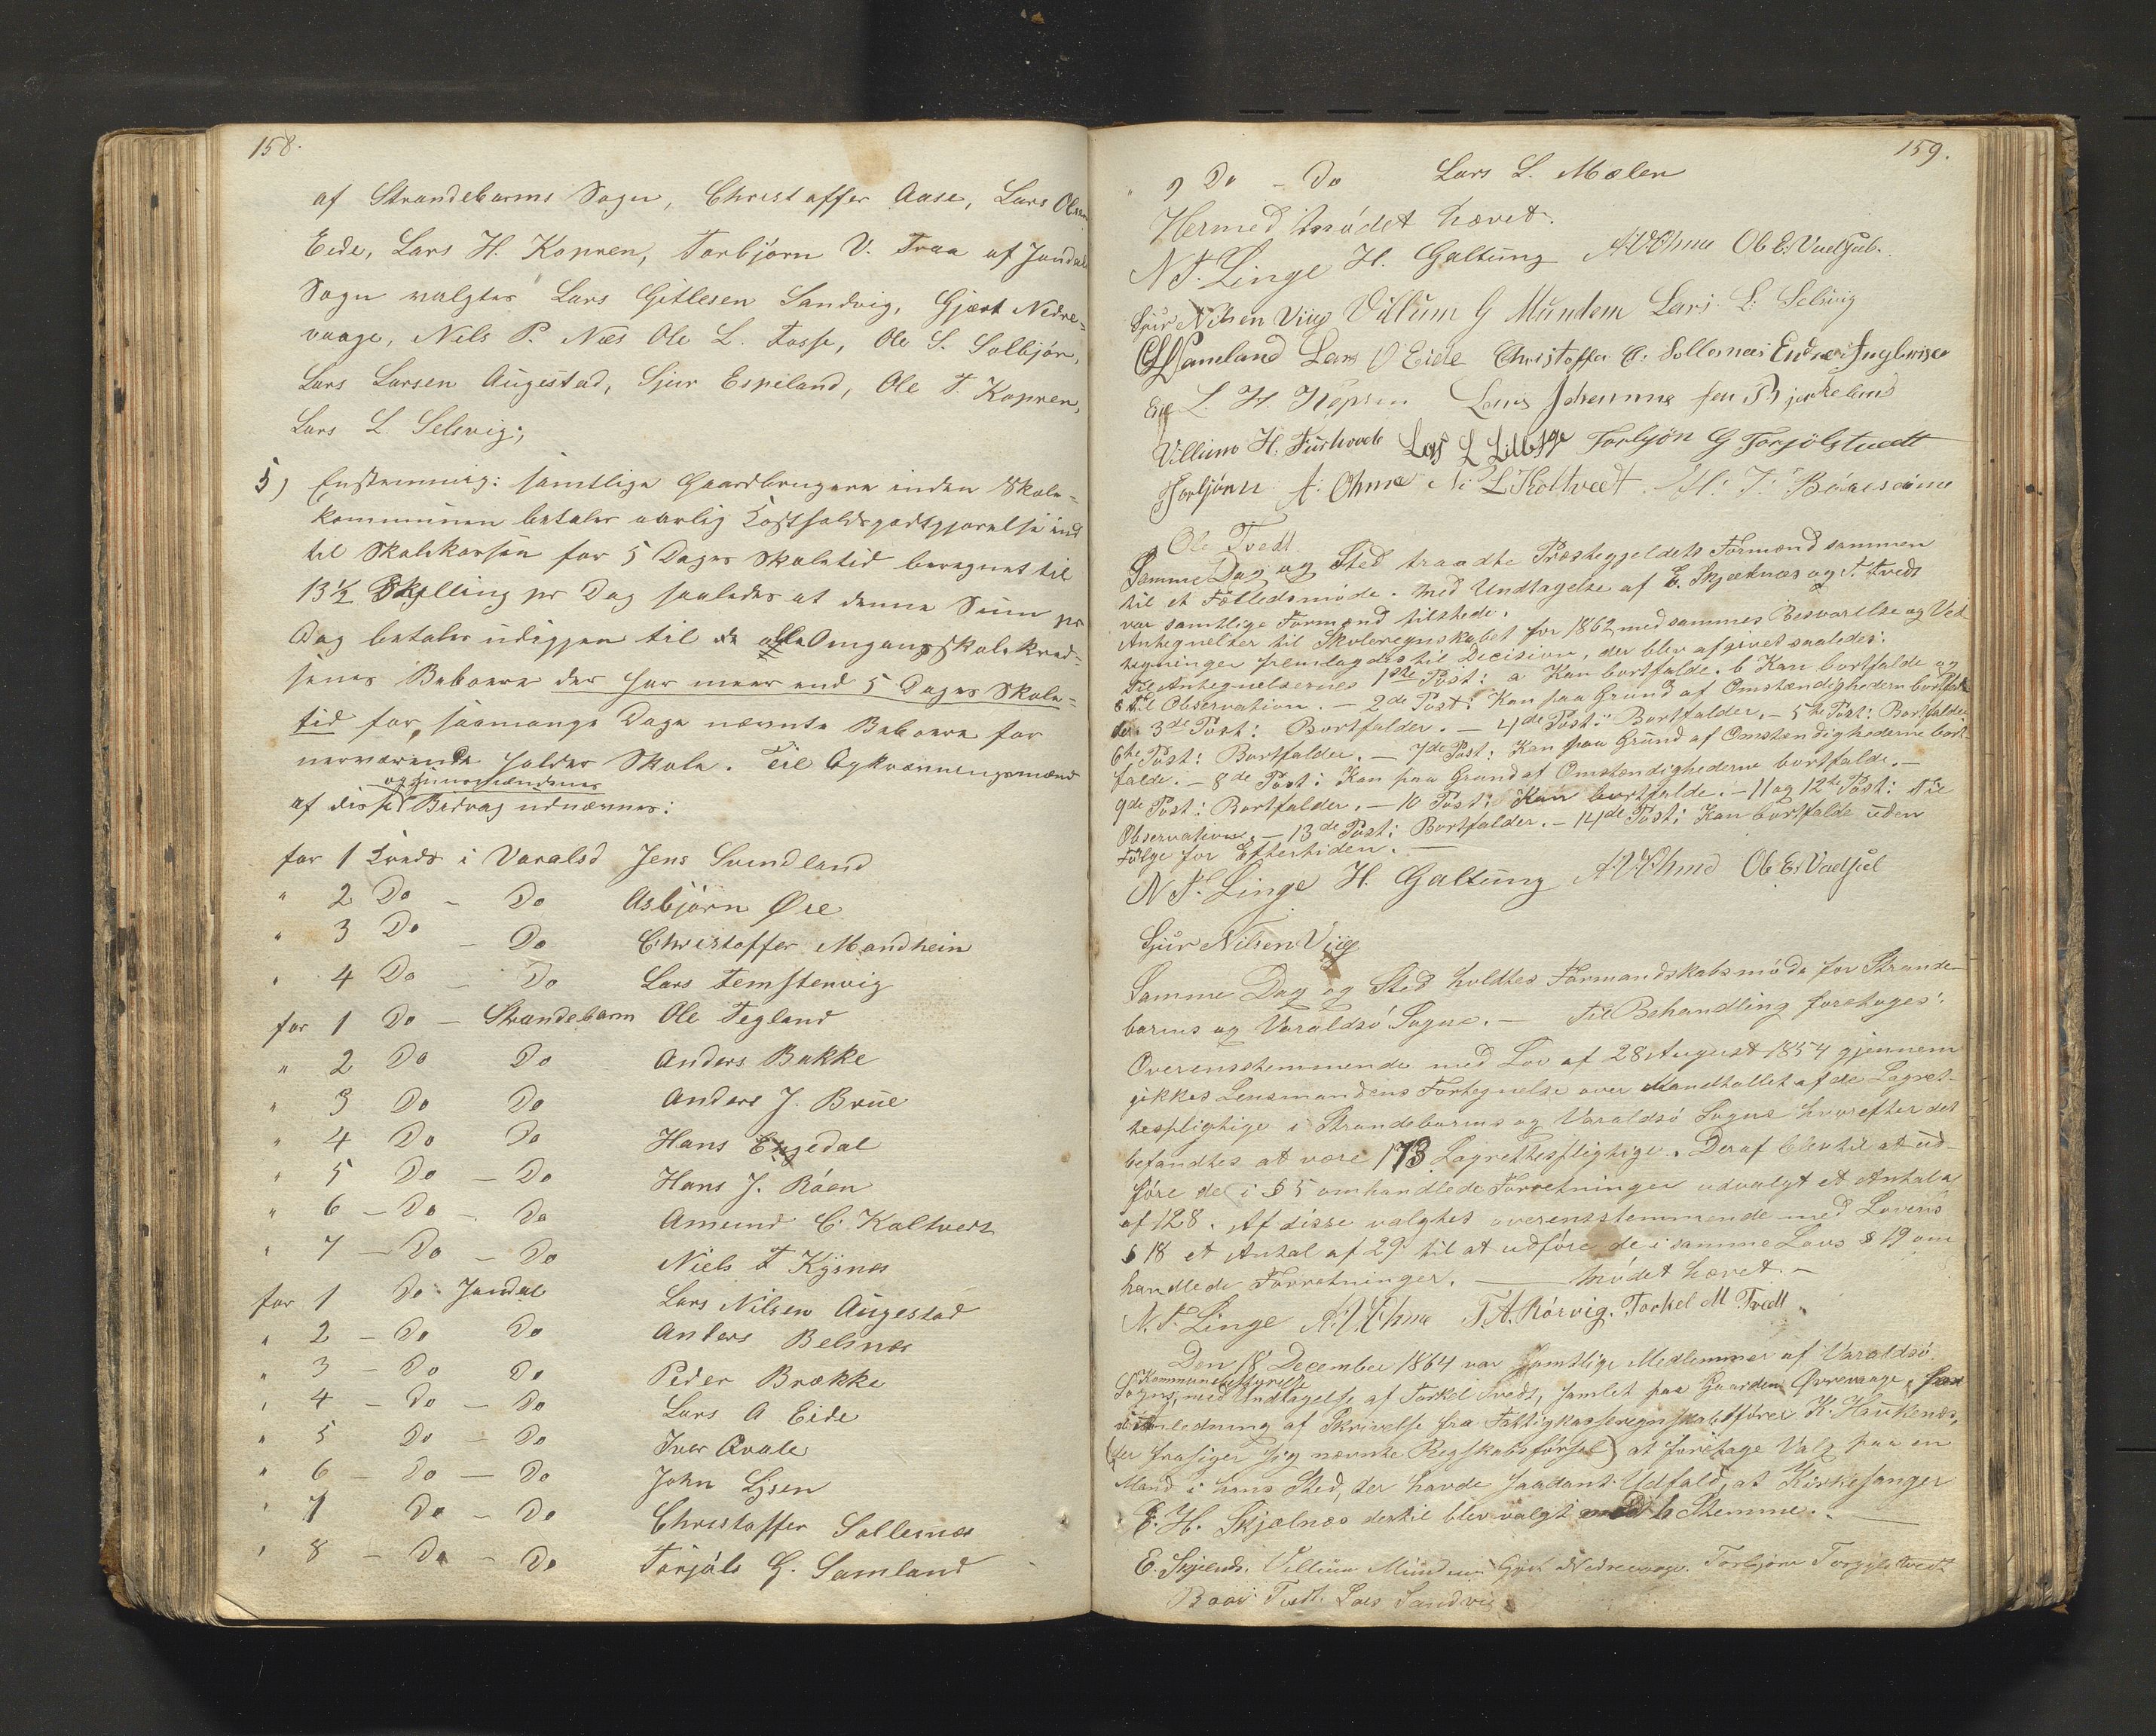 158.
af Strandebarms Sogn, Christoffer Aase, Lars Olsen
Eide, Lars H. Kopren, Torbjørn V. Traa af Jondals
Sogn valgtes Lars Gitlesen Sandvig, Gjært Nedre=
vaage, Nels P. Næs Ole L. Tosse, Ole S. Solbjør,
Lars Larsen Augestad, Sjur Espeland, Ole T. Kopren,
Lars L. Selsvig;
5) Enstemmig: samtlige Gaardbrugere inden Skole=
kommunen betaler aarlig Kostholdsgodtgjørelse ind
til Skolekassen for 5 Dages Skoletid beregnet til
13½ Skylling pr Dag saaledes at denne Sum pr
Dag betales udigjen til de alle Omgangsskolekred=
senes Beboere der har meer end 5 Dages Skole=
tid for saamange Dage nævnte Beboere for
nærværende holder Skole. Til Opkrævningsmænd
og Formænderne
af disse Bidrag udnævnes:
for 1 Kreds i Varalsö Jens Sundland
" 2 Do - Do Asbjørn Øie
" 3 Do - Do Christoffer Mandhein
" 4 Do - Do Lars Femstenvig
for 1 Do - Strandebarm Ole Tegland
" 2 Do Do Anders Bakke
" 3 Do Do Anders J. Brue
" 4 Do Do Hans Engedal
" 5 Do - Do Hans J. Röen
" 6 - Do - Do Amund C. Koltvedt
" 7 - Do - Do Niels T Kysnes
for 1 Do Jondal Lars Nilsen Augestad
" 2 - Do Do Anders Belsnes
" 3 - Do Do Peder Brække
" 4 - Do - Do Lars A Eide
" 5 Do - Do Iver Qvale
" 6 - Do - Do John Lysen
" 7 Do - Do Christoffer Sollesnes
" 8 - Do - Do Torjäls G. Samland
159.
" 9 Do - Do Lars L. Mælen
Hermed mödet hævet.
N T. Linge H. Galtung A V Ohma Ole E. Vadsjul.
Sjur Nilsen Viig Villum G Mundem Lars L. Selsvig
Samland Lars O Eide Christoffer C. Sollesnes Endre Ingbrigtsen
Eie L. H. Kopren Lars Johannes sen Bjerkeland
Villum H. Fushovde Las L Lillesge Torbjön G Torjölstvedt
Torbjörn A. Ohma N. L Koltvedt
Ole Tvedt
Samme Dag og Sted traadte Præstegjeldets Formænd sammen
til et Fælledsmöde. med Undtagelse af E. Skjelnæs og T. Tvedt
var samtlige Formænd tilstede.
Antegnelser til Skoleregnskabet for 1862 med sammes Besvarelse og Ved
tegninger fremlagdes til Decision, der blev afgivet saaledes:
Til Antegnelsernes 1ste Post: a Kan bortfalde. b Kan bortfalde og
c til Observation. - 2de Post: Kan paa Grund af Omstændighedern bortfal
de. 3de Post: Bortfalder. - 4de Post: Bortfalder. - 5te Post: Bortfalder
6te Post: Bortfalder. - 7de Post: Kan paa Grund af Omstændighederne bort
falde. - 8de Post: Kan paa Grund af Omstændighederne bortfalde. -
9de Post: Bortfalder. - 10 Post: Kan bortfalde. - 11 og 12te Post: Til
Observation. - 13de Post: Bortfalder. - 14de Post: Kan bortfalde uden
Fölge for Eftertiden. -
N T. Linge H. Galtung A V Ohma Ole E. Vadsjul
Sjur Nilsen Viig
Samme Dag og Sted holdtes Formandskabsmöde for Strande-
barms og Varaldsö Sogne. - Til Behandling foretoges:
Overensstemmende med Lov af 28 August 1854 gjennem
gikkes Lensmandens Fortegnelse over Mandtallet af de Lagret-
tespligtige i Strandebarms og Varaldsö Sogne hvorefter det
befandtes at være 173 Lagrettespligtige. Deraf blev til at ud-
före de i § 5 omhandlede Forretninger udvalgt et Antal a
af 128. Af disse valgtes overensstemmende med Lovens
§ 18 et Antal af 29 til at udföre de i samme Lovs § 19 om
handlede Forretninger. - Mödet hævet -
N. T. Linge A. V. Ohma T. A. Rörvig. Torkel M. Tvedt.
Den 18 December 1864 var samtlige Medlemmer af Varaldsö
Kommunebestyrelse
Sogns, med Undtagelse af Torkel Tvedt, samlet paa Gaarden Övrevaage, for
i Anledning af Skrivelse fra Fattigkasseregnskabsförer K. Haukenæs,
(der frasiger sig nævnte Regskabsförsel) at foretage Valg paa en
Mand i hans Sted, der havde saadant Udfald, at Kirkesanger
E. H. Skjælnæs dertil blev valgt med 6 Stemme. -
E. Skjelnæs. Villum Mundem Gjert Nedrevaage. Torbjörn Torgylstvedt
Baar Tvedt. Lars Sandvig